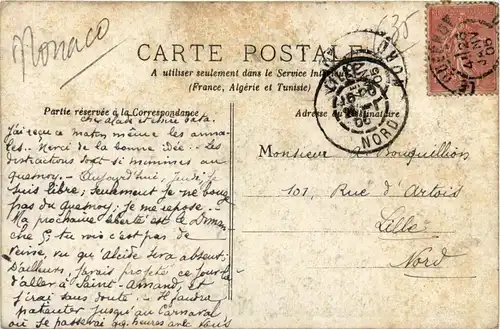 Monaco
635
CARTE POSTALE
A utiliser seulement dans le Service Intérieur
(France, Algérie et Tunisie)
Partie réservée à la Correspondance
Adresse du Destinataire
J'ai reçu ce matin même les anna-
les. Merci de la bonne idée. Les
distractions sont si minimes au
quesnoy. Aujourd'hui, jeudi, je
suis libre; seulement je ne bouge
pas du quesnoy; je me repose.
Ma prochaine liberté est le Diman
che 5; tu vois c'est pas de
veine, vu qu'Alcide sera absent;
D'ailleurs, j'avais projeté ce jour-là
d'aller à Saint-Amand, et
j'irai sans doute. Il faudra
patienter jusqu'au Carnaval
où je passerai des heures avec vous
Monsieur Bouquillion
101, Rue d'Artois
Lille
Nord
NORD